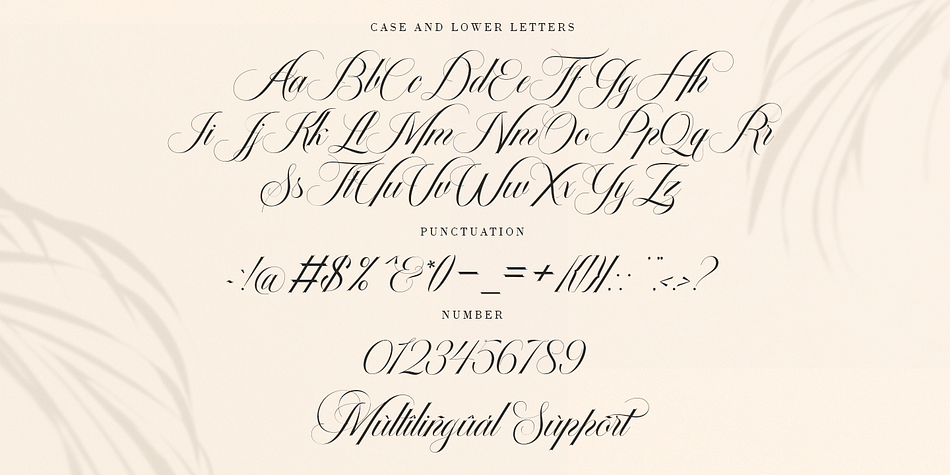 CASE AND LOWER LETTERS
Aa Bb Cc Dd Ee Ff Gg Hh
Ii Jj Kk Ll Mm Nn Oo Pp Qq Rr
Ss Tt Uu Vv Ww Xx Yy Zz
PUNCTUATION
~!@#$%^&*()-_=+/{}|:;"',<.>?
NUMBER
0123456789
Mùltilingûál Sùppórt